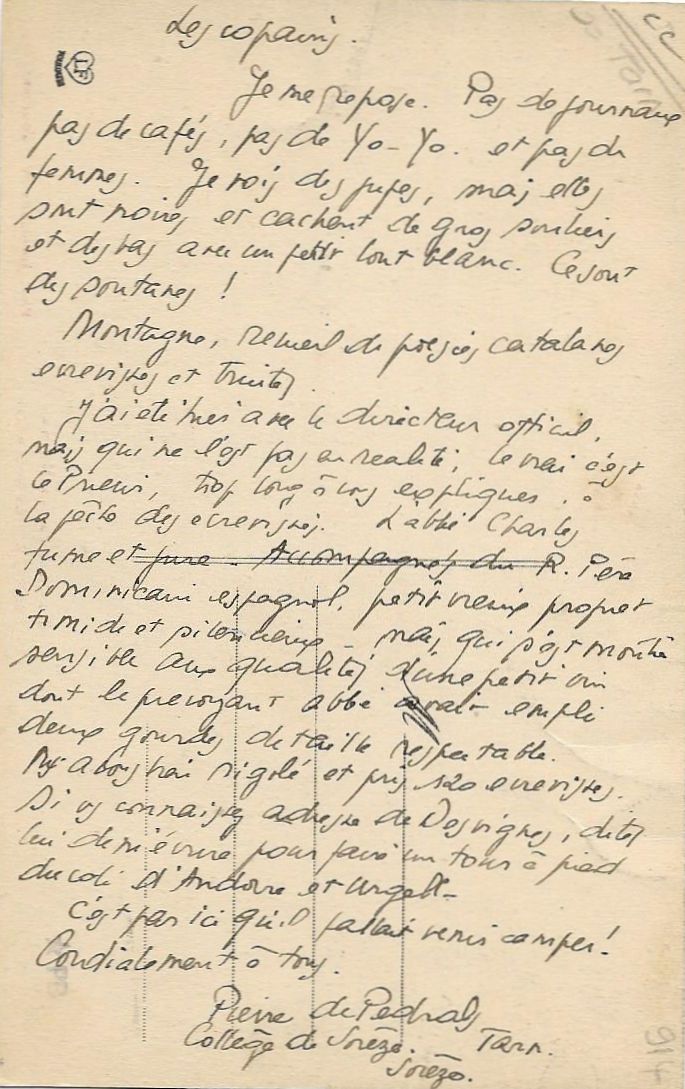 Les copains.
Je me repose. Pas de journaux
pas de cafés, pas de Yo-Yo. et pas de
femmes. Je vois des jupes, mais elles
sont noires et cachent de gros souliers
et des bas avec un petit bout blanc. Ce sont
des soutanes !
Montagne, recueil de poésies catalanes
ecrevisses et truites.
J'ai été hier avec le directeur officiel,
mais qui ne l'est pas en realité, le vrai c'est
le Prieur, trop long à vs expliquer, à
la pêche des ecrevisses. L'abbé Charles
fume et jure - Accompagnés du R. Père
Dominicain espagnol, petit vieux propret
timide et silencieux - mais qui s'est montré
sensible aux qualités d'une petit vin
dont le prevoyant abbé avait empli
deux gourdes de taille respectable.
Ns avons bien rigolé et pris 120 ecrevisses.
Si vs connaissez adresse de Desvignes, dites
lui de m'écrire pour faire un tour à pied
du coté d'Andorre et Urgell -
C'est par ici qu'il fallait venir camper !
Cordialement à tous.
Pierre de Pedrals
Collège de Sorèze. Tarn.
Sorèze.
LF
cc